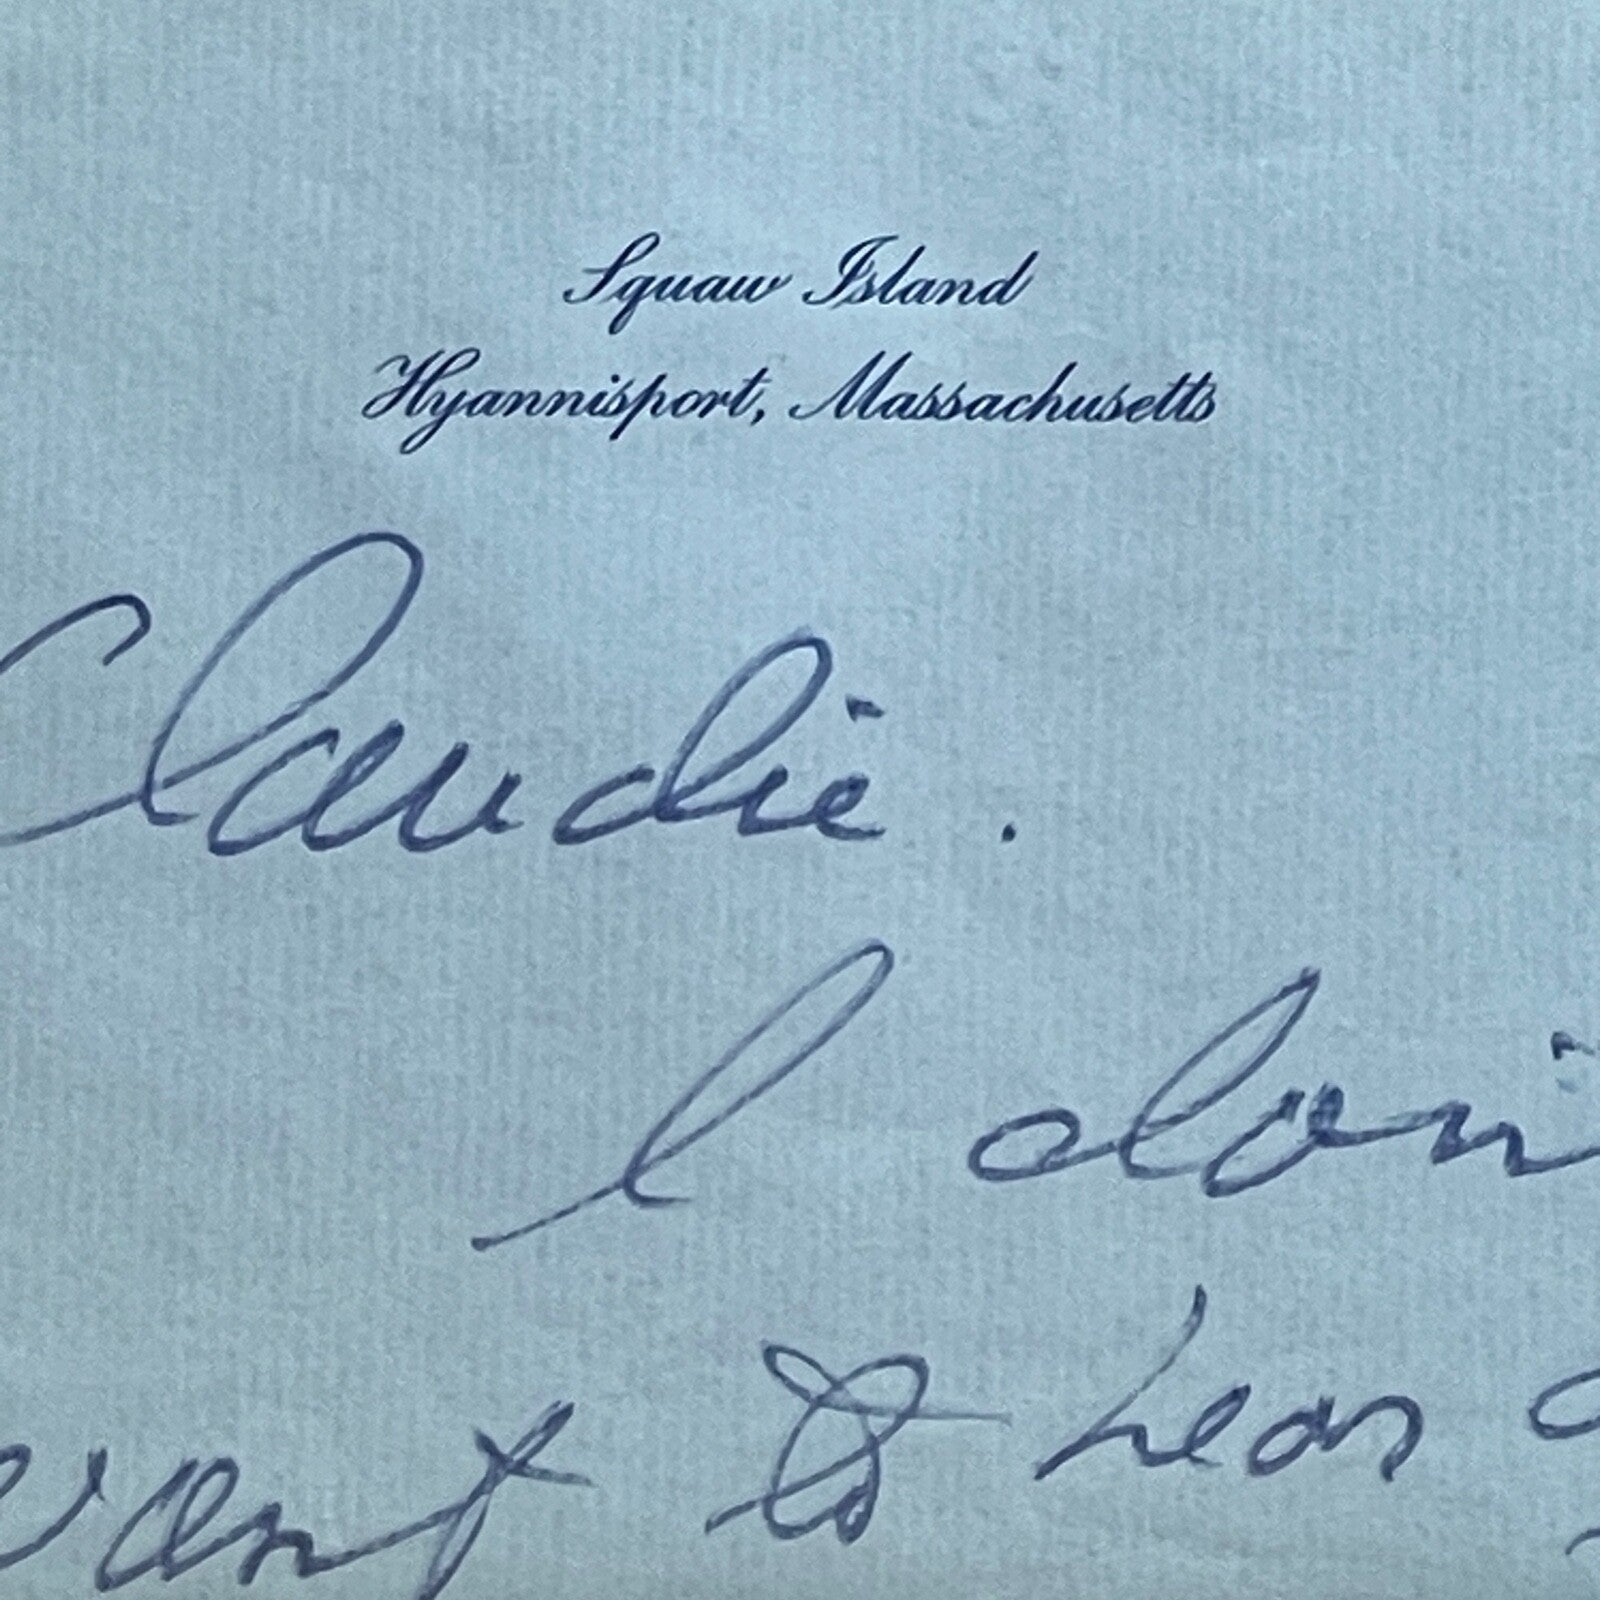 Squaw Island
Hyannisport, Massachusetts
Claudie.
I don't
want to hear